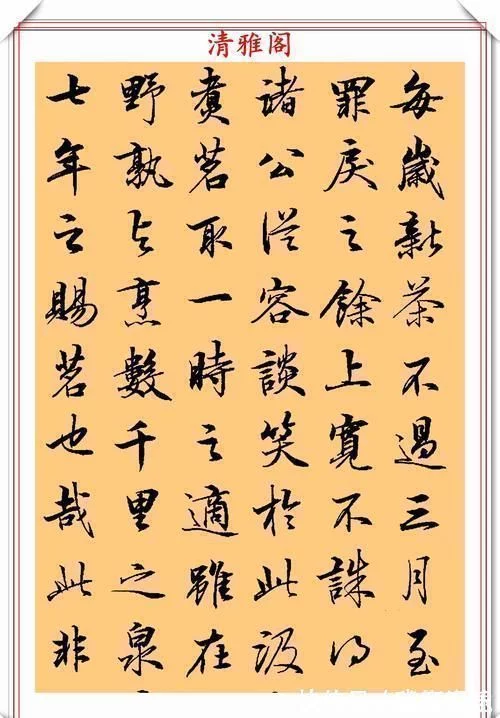 清雅阁
每歲新茶不過三月至
罪戾之餘上寬不誅得
諸公從容談笑於此汲
煮茗取一時之適雖在
野孰與烹數千里之泉
七年之賜茗也哉此非